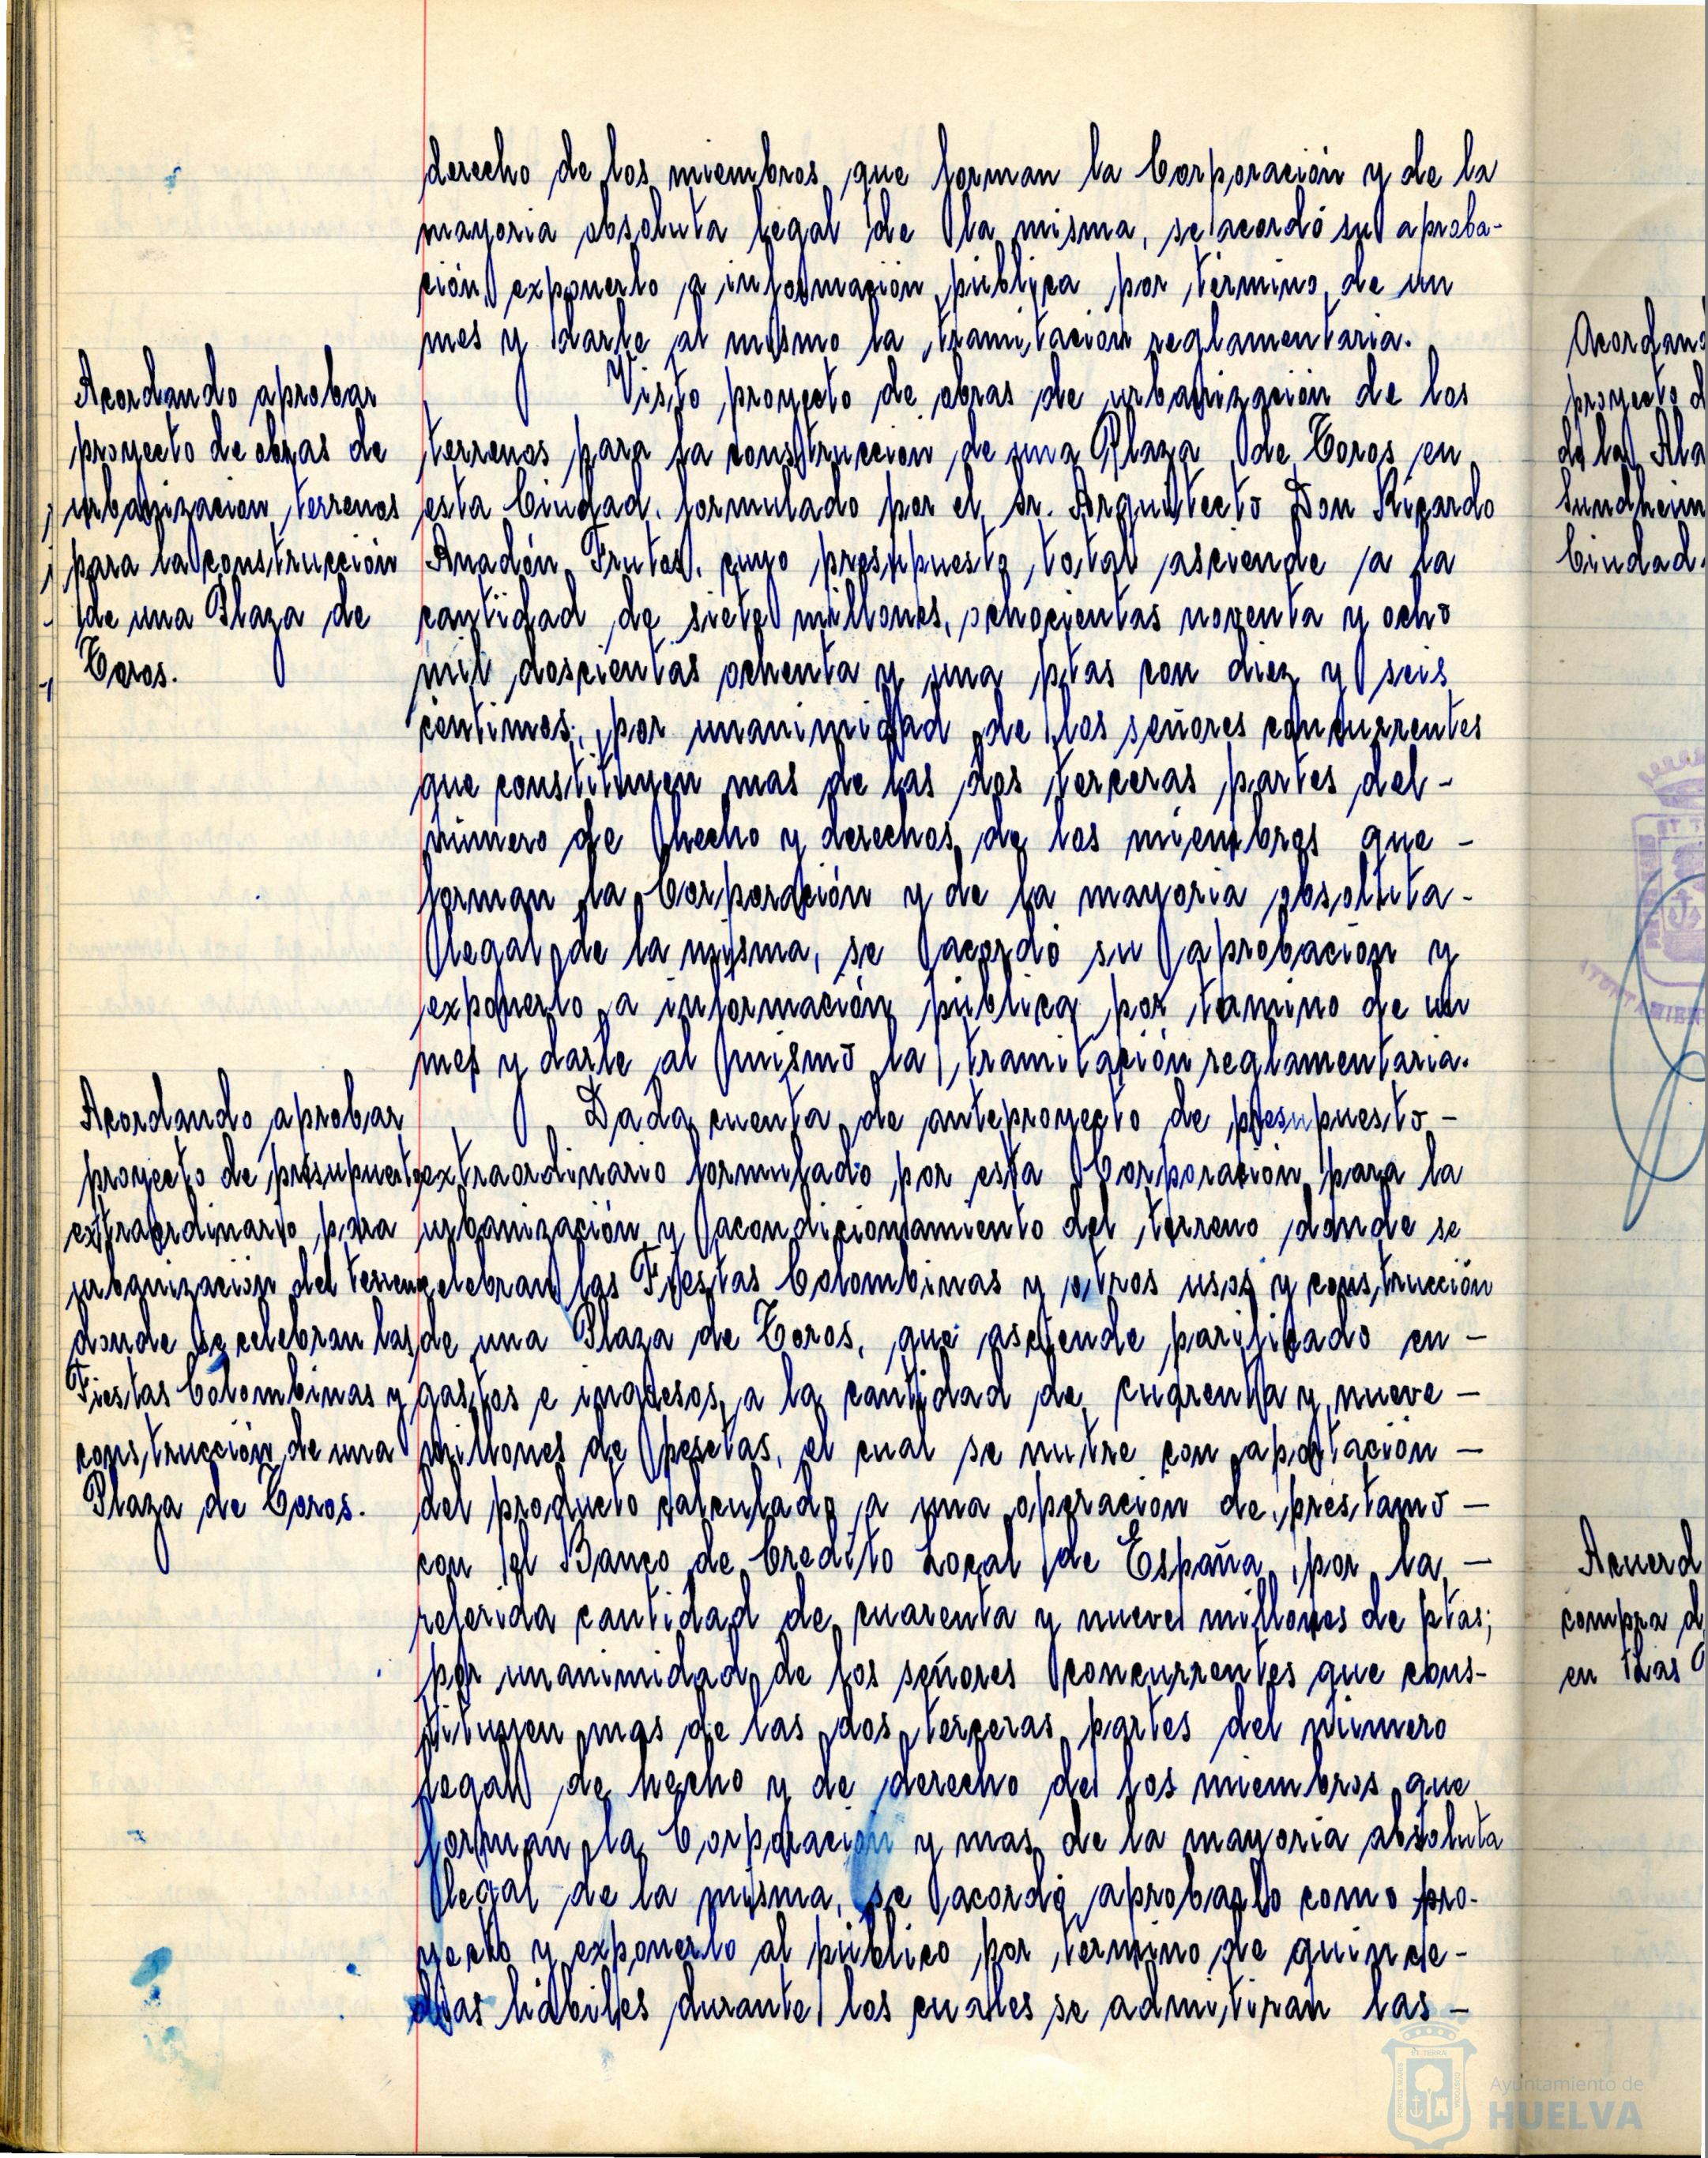 derecho de los miembros que forman la Corporación y de la
mayoria absoluta legal de la misma, se acordó su aproba-
ción, exponerlo a información pública por término de un
mes y darle al mismo la tramitación reglamentaria.
Acordando aprobar
proyecto de obras de
urbanización terrenos
para la construcción
de una Plaza de
Toros.
Visto proyecto de obras de urbanización de los
terrenos para la construcción de una Plaza de Toros en
esta Ciudad, formulado por el Sr. Arquitecto Don Ricardo
Anadón Frutos, cuyo presupuesto total asciende a la
cantidad de siete millones, ochocientas noventa y ocho
mil doscientas ochenta y una ptas con diez y seis
centimos; por unanimidad de los señores concurrentes
que constituyen mas de las dos terceras partes del -
número de hecho y derechos de los miembros que -
forman la Corporación y de la mayoria absoluta -
legal de la misma, se acordó su aprobación y
exponerlo a información pública por termino de un
mes y darle al mismo la tramitación reglamentaria.
Acordando aprobar
proyecto de presupuesto
extraordinario para
urbanización del terreno
donde se celebran las
Fiestas Colombinas y
construcción de una
Plaza de Toros.
Dada cuenta de anteproyecto de presupuesto -
extraordinario formulado por esta Corporación para la
urbanización y acondicionamiento del terreno donde se
celebran las Fiestas Colombinas y otros usos y construcción
de una Plaza de Toros, que asciende parificado en -
gastos e ingresos, a la cantidad de cuarenta y nueve -
millones de pesetas, el cual se nutre con aportación -
del producto calculado a una operación de préstamo -
con el Banco de Crédito Local de España, por la -
referida cantidad de cuarenta y nueve millones de ptas;
por unanimidad de los señores concurrentes que cons-
tituyen mas de las dos terceras partes del número
legal de hecho y de derecho de los miembros que
forman la Corporación y mas de la mayoria absoluta
legal de la misma, se acordó aprobarlo como pro-
yecto y exponerlo al público por término de quince -
dias hábiles durante los cuales se admitiran las -
Acordan
proyecto d
de las Ala
Sundheim
Ciudad.
Acuerd
compra d
en las
Ayuntamiento de
HUELVA